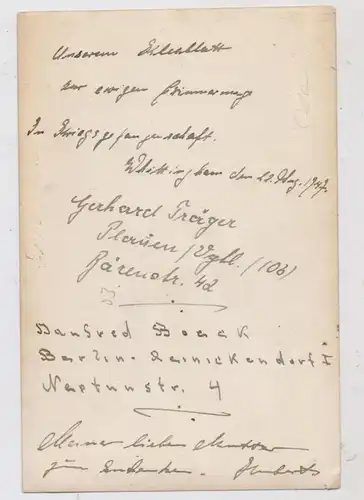 Unserem Eichenblatt
zur ewigen Erinnerung
In Kriegsgefangenschaft.
Whittingham den 22. Aug. 1947.
Gerhard Träger
Plauen / Vgtl. (10b)
Bärenstr. 42
Manfred Boack
Berlin-Reinickendorf I
Neptunstr. 4
Meiner lieben Mutter
zum Andenken. Huberts